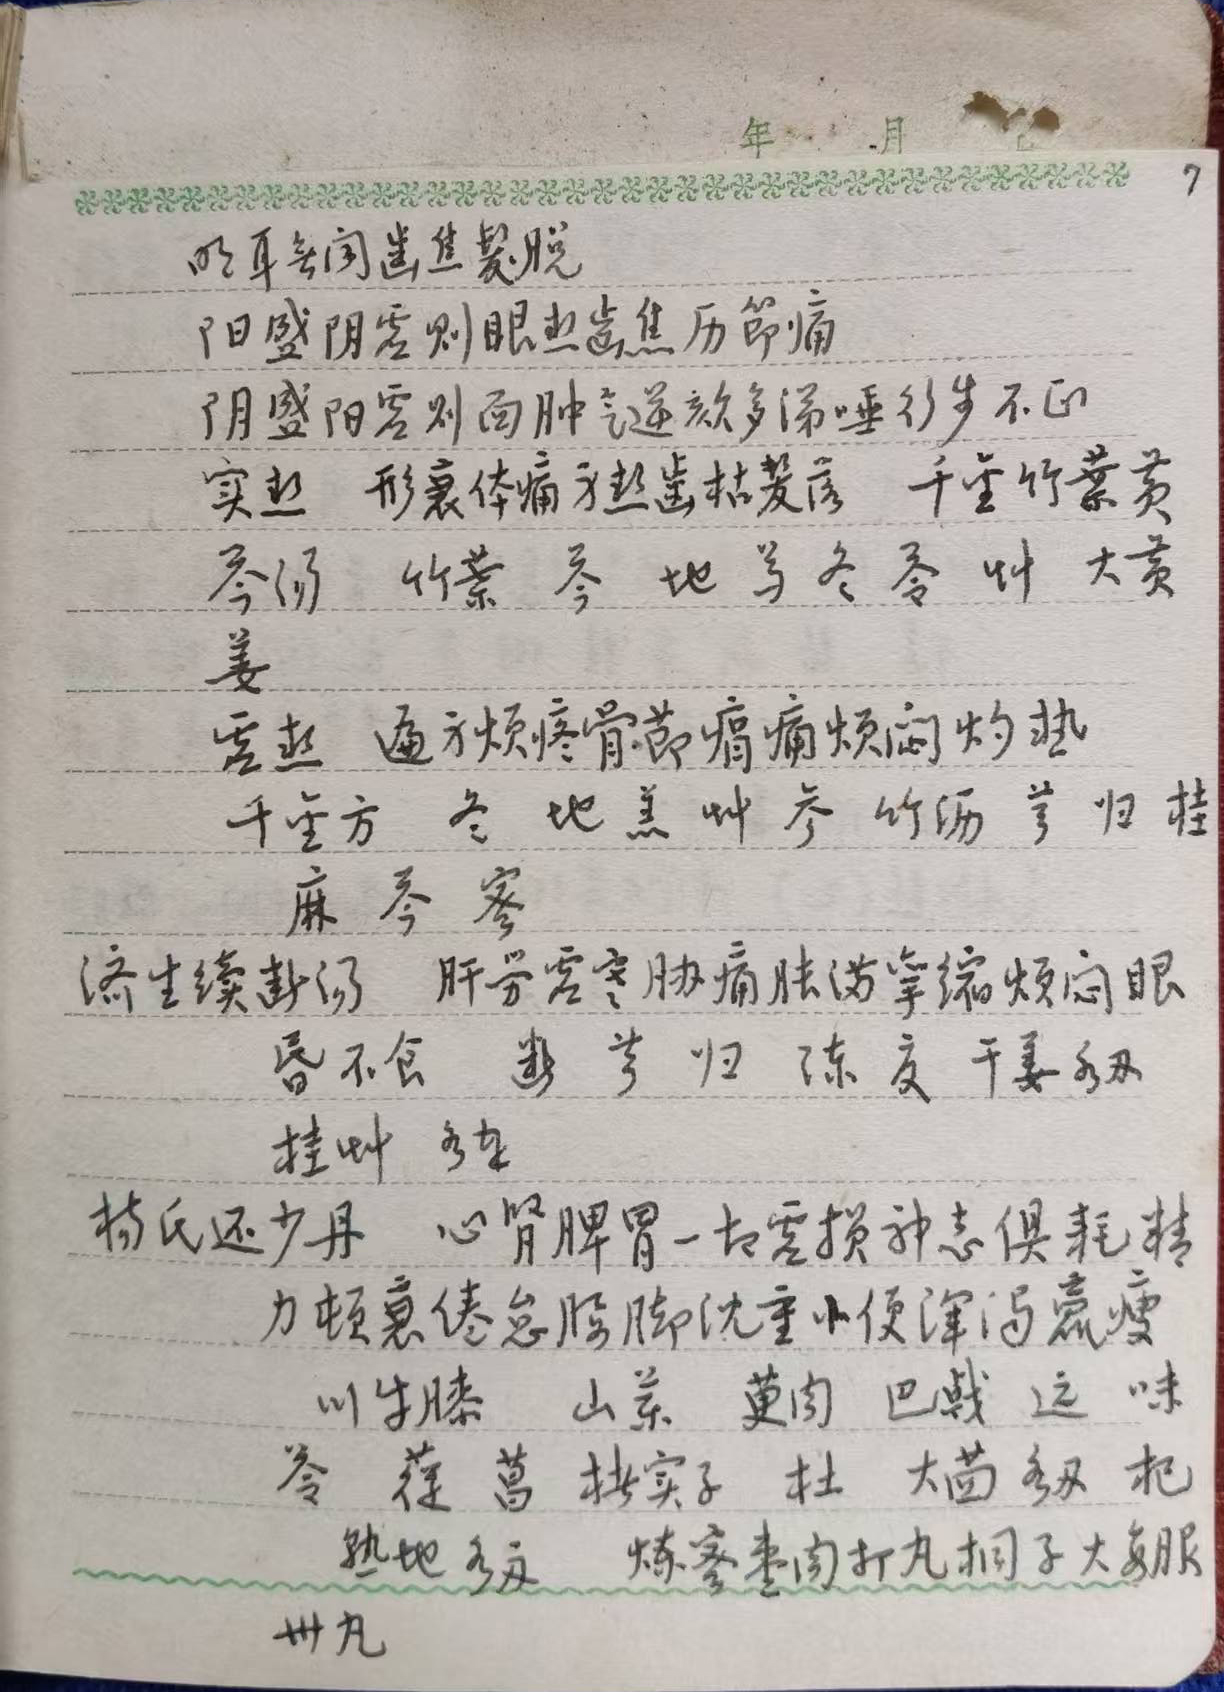 年 月
7
明耳無闻齒焦髮脱
阳盛阴虚则眼热齒焦历節痛
阴盛阳虚则面肿气逆欬多涕唾行步不正
实热 形衰体痛身热齒枯发落 千金竹葉黄
芩汤 竹葉 芩 地 芍 冬 苓 艸 大黄
姜
虚热 遍身烦疼骨節痟痛烦闷灼热
千金方 冬 地 羔 艸 参 竹沥 芎 归 桂
麻 芩 蜜
济生续断汤 肝劳虚寒胁痛胀满挛缩烦闷眼
昏不食 断 芎 归 陈 夏 干姜 各
桂艸 各
杨氏还少丹 心肾脾胃一切虚损神志俱耗精
力顿衰倦怠腰脚沈重小便浑浊羸瘦
川牛膝 山药 萸肉 巴戟 远 味
苓 苁 菖 楮实子 杜 大茴 各 杞
熟地 各 炼蜜枣肉打丸桐子大每服
卅丸